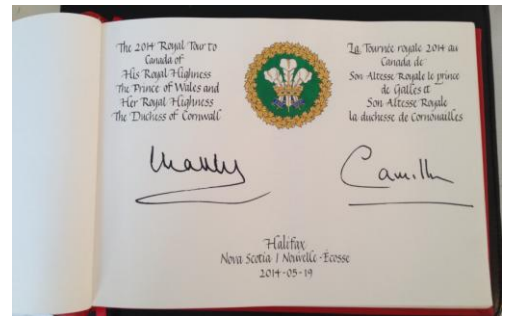 The 2014 Royal Tour to
Canada of
His Royal Highness
The Prince of Wales and
Her Royal Highness
The Duchess of Cornwall
La Tournée royale 2014 au
Canada de
Son Altesse Royale le prince
de Galles et
Son Altesse Royale
la duchesse de Cornouailles
Charles
Camilla
Halifax
Nova Scotia / Nouvelle-Écosse
2014-05-19